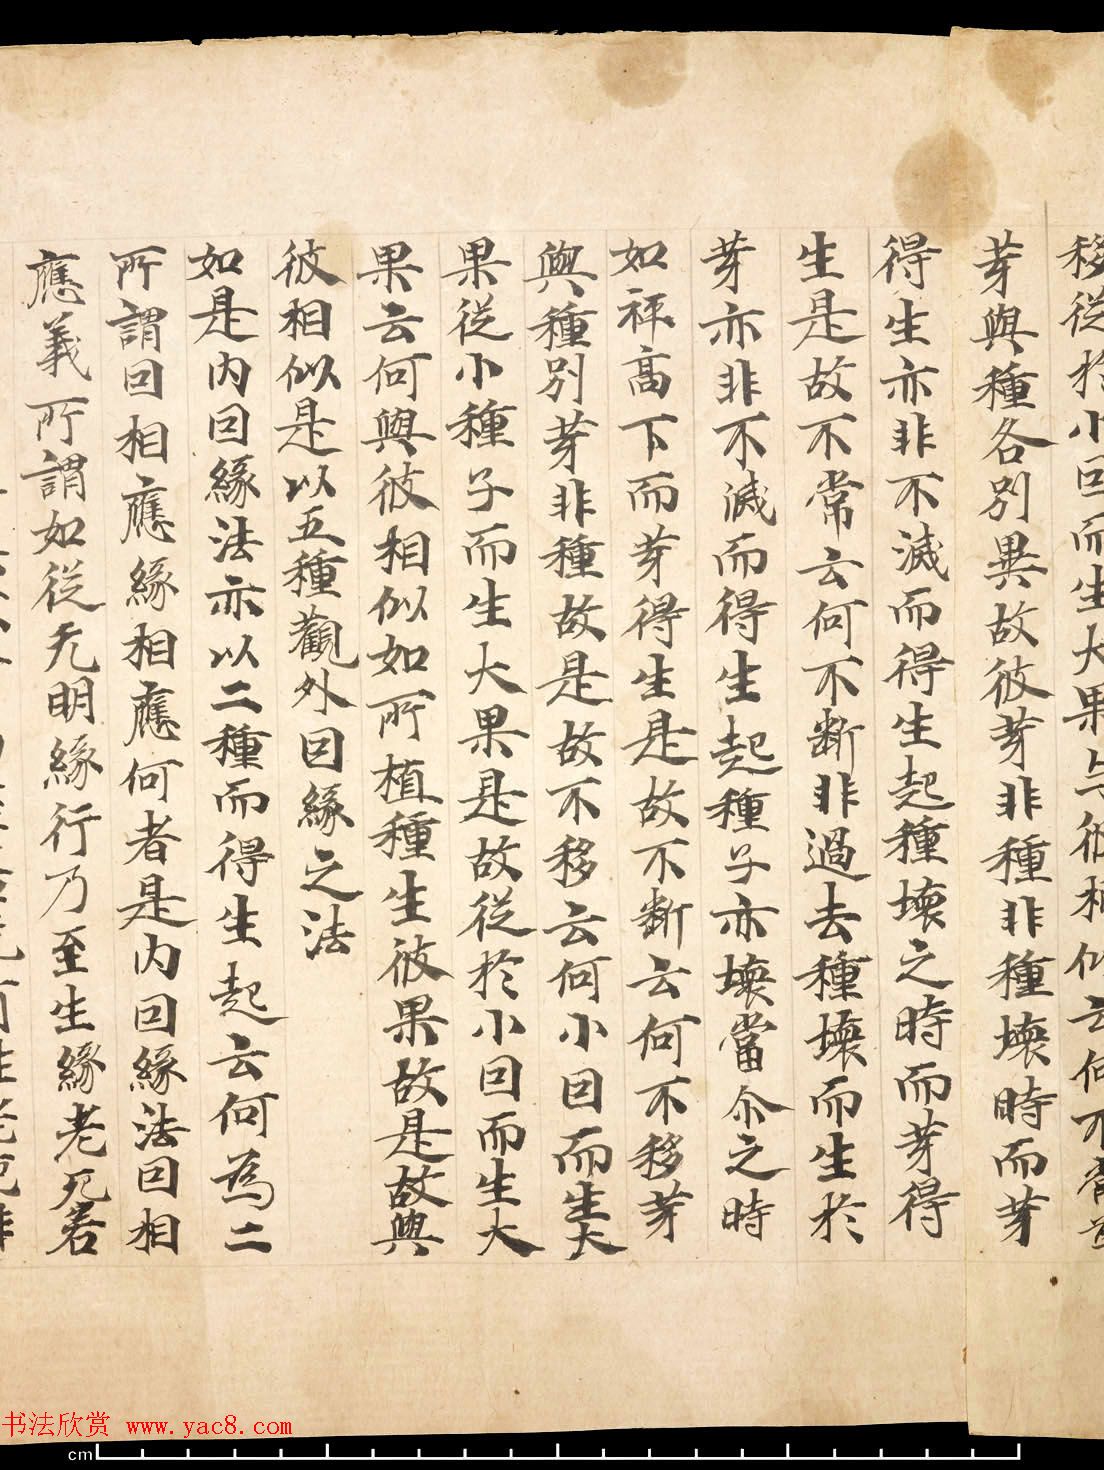 移從於小因而生大果与彼相似云何不常
芽與種各別異故彼芽非種非種壞時而芽
得生亦非不滅而得生起種壞之時而芽得
生是故不常云何不斷非過去種壞而生於
芽亦非不滅而得生起種子亦壞當尒之時
如秤高下而芽得生是故不斷云何不移芽
與種別芽非種故是故不移云何小因而生大
果從小種子而生大果是故從於小因而生大
果云何與彼相似如所植種生彼果故是故與
彼相似是以五種觀外因緣之法
如是內因緣法亦以二種而得生起云何為二
所謂因相應緣相應何者是內因緣法因相
應義所謂如從无明緣行乃至生緣老死若
书法欣赏 www.yac8.com
cm